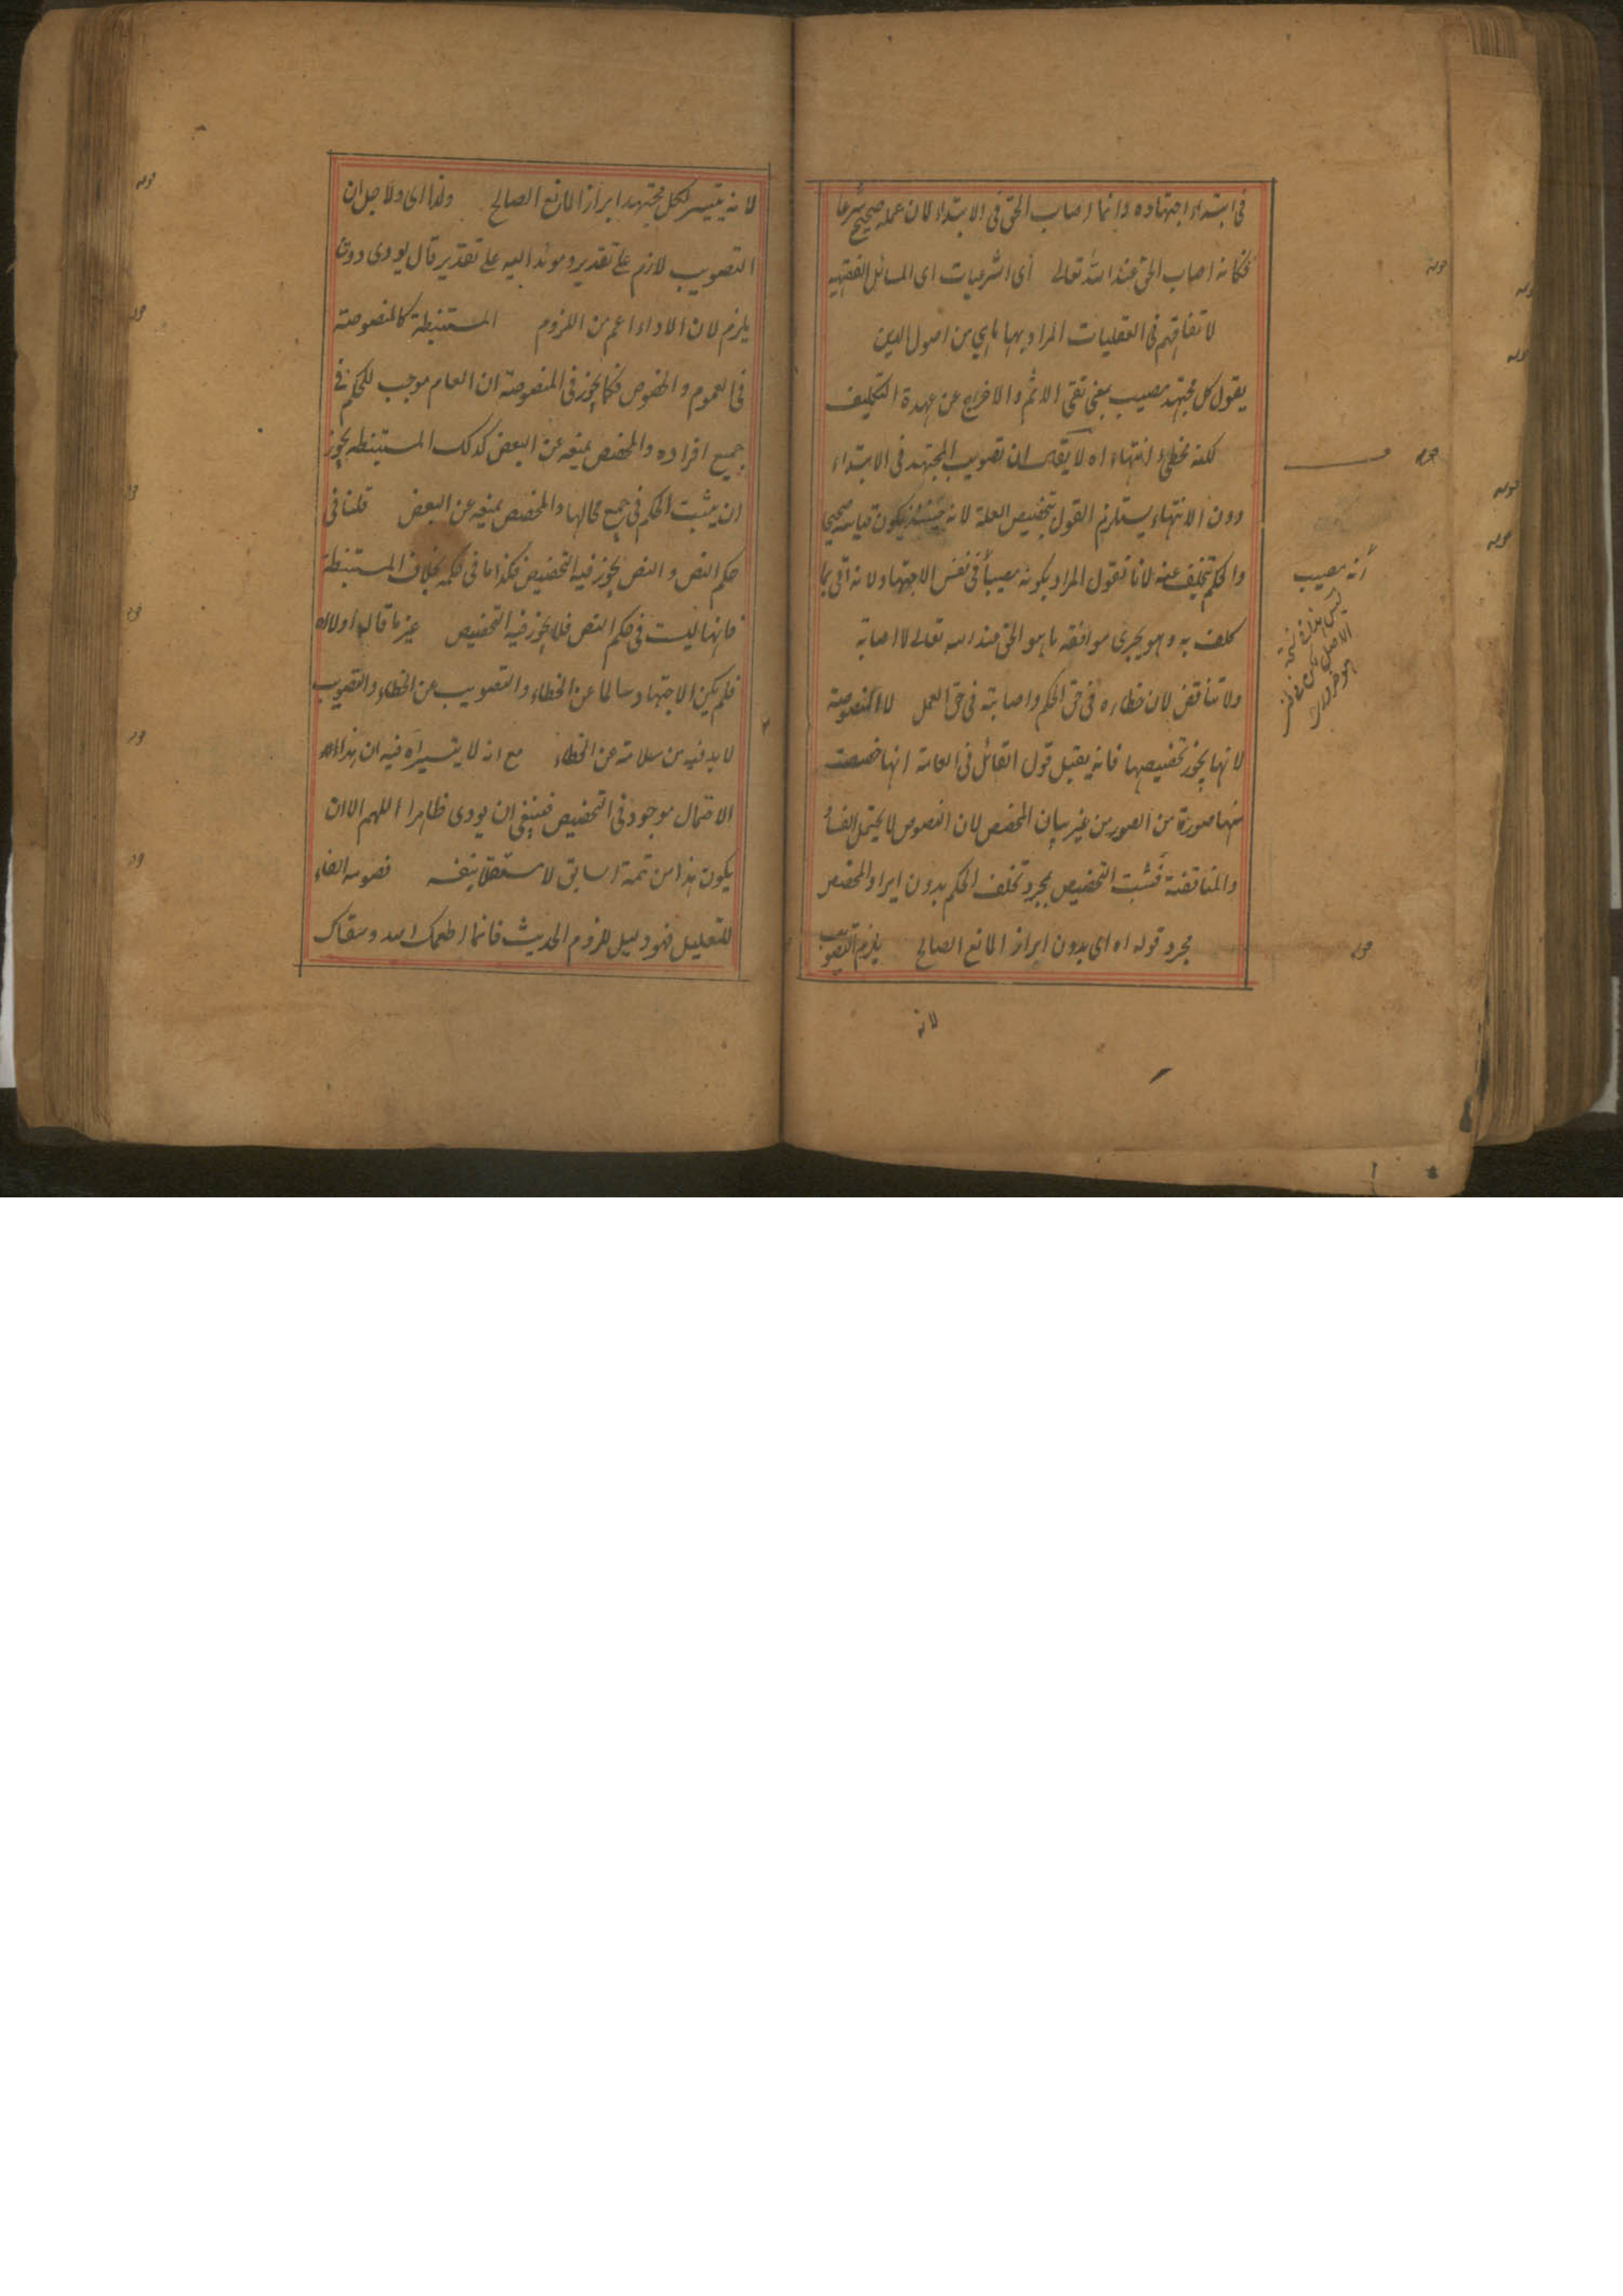 فى ابتداء اجتهاده وانما اصاب الحق فى الابتداء لان عمله صحيح شرعا
فكانه اصاب الحق عند الله تعالى أى الشرعيات اى المسائل الفقهيه
لا تفاقهم فى العقليات المراد بها ما هي من اصول الدين
يقول كل مجتهد مصيب بمعنى نفى الاثم والاخراج عن عهدة التكليف
لكنه مخطئ انتهاء اه لا يقال ان تصويب المجتهد فى الابتداء
دون الانتهاء يستلزم القول بتخصيص العلة لانه حينئذ يكون قياسه صحيحا
والحكم تخلف عنه لانا نقول المراد بكونه مصيبا فى نفس الاجتهاد لانه اتى بما
كلف به وهو يجرى موافقه ما هو الحق عند الله تعالى لا اصابة
ولا تناقض لان خطاءه فى حق الحكم واصابته فى حق العمل لا المنصوصة
لانها يجوز تخصيصها فانه يقبل قول القائل فى العامة انها خصصت
منها صورة من الصور من غير بيان المخصص لان النصوص لا يحتمل الفساد
والمناقضة فثبت التخصيص بمجرد تخلف الحكم بدون ايراد المخصص
مجرد قوله اه اى بدون ابراز المانع الصالح يلزم التصويب
لانه
أنه مصيب
لانه يتيسر لكل مجتهد ابراز المانع الصالح ولذا اى ولاجل ان
التصويب لازم على تقدير ومؤد اليه على تقدير قال يودى دون
يلزم لان الاداء اعم من اللزوم المستنبطة كالمنصوصة
فى العموم والخصوص فكما يجوز فى المنصوصة ان العام موجب للحكم فى
جميع افراده والمخصص يمنعه عن البعض كذلك المستنبطه يجوز
ان يثبت الحكم فى جميع محالها والمخصص يمنعه عن البعض قلنا فى
حكم النص والنص يجوز فيه التخصيص فكذا ما فى حكمه بخلاف المستنبطة
فانها ليست فى حكم النص فلا يجوز فيه التخصيص غير ما قال أولا اه
فلم يكن الاجتهاد سالما عن الخطاء والتصويب عن الخطاء والتصويب
لا بد فيه من سلامته عن الخطاء مع انه لا يتيسر اه فيه ان هذا
الاحتمال موجود فى التخصيص فينبغى ان يودى ظاهرا اللهم الا ان
يكون هذا من تتمة السابق لا مستقلا بنفسه فصومه الفاء
للتعليل فهو دليل للزوم الحديث فانما اطعمك الله وسقاك